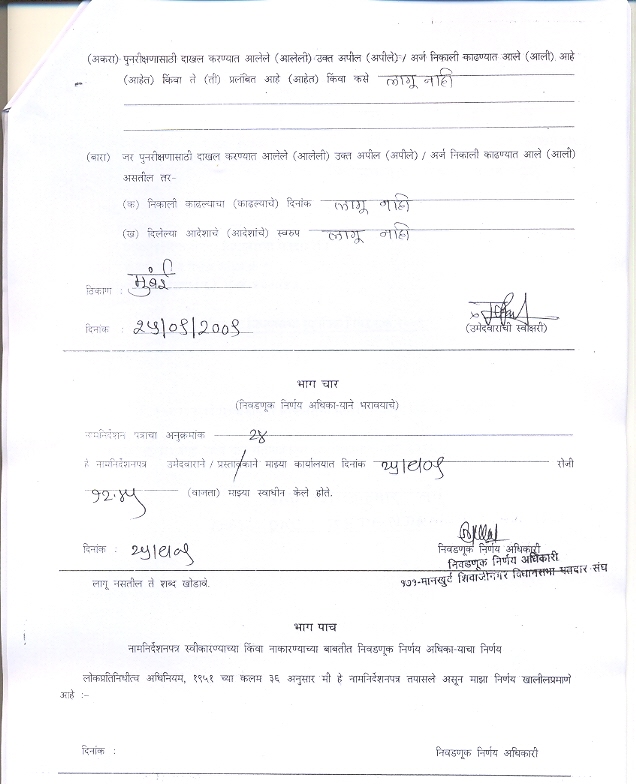 (अकरा) पुनरीक्षणासाठी दाखल करण्यात आलेले (आलेली) उक्त अपील (अपीले) / अर्ज निकाली काढण्यात आले (आली) आहे
(आहेत) किंवा ते (ती) प्रलंबित आहे (आहेत) किंवा कसे लागू नाही
(बारा) जर पुनरीक्षणासाठी दाखल करण्यात आलेले (आलेली) उक्त अपील (अपीले) / अर्ज निकाली काढण्यात आले (आली)
असतील तर-
(क) निकाली काढल्याचा (काढल्याचे) दिनांक लागू नाही
(ख) दिलेल्या आदेशाचे (आदेशांचे) स्वरुप लागू नाही
ठिकाण : मुंबई
दिनांक : २५/०९/२००९
(उमेदवाराची स्वाक्षरी)
भाग चार
(निवडणूक निर्णय अधिका-याने भरावयाचे)
नामनिर्देशन पत्राचा अनुक्रमांक २४
हे नामनिर्देशनपत्र उमेदवाराने / प्रस्तावकाने माझ्या कार्यालयात दिनांक २५/९/०९ रोजी
१२.४५ (वाजता) माझ्या स्वाधीन केले होते.
दिनांक : २५/९/०९
निवडणूक निर्णय अधिकारी
निवडणूक निर्णय अधिकारी
१७१-मानखुर्द शिवाजीनगर विधानसभा मतदार संघ
लागू नसतील ते शब्द खोडावे.
भाग पाच
नामनिर्देशनपत्र स्वीकारण्याच्या किंवा नाकारण्याच्या बाबतीत निवडणूक निर्णय अधिका-याचा निर्णय
लोकप्रतिनिधीत्व अधिनियम, १९५१ च्या कलम ३६ अनुसार मी हे नामनिर्देशनपत्र तपासले असून माझा निर्णय खालीलप्रमाणे
आहे :-
दिनांक :
निवडणूक निर्णय अधिकारी